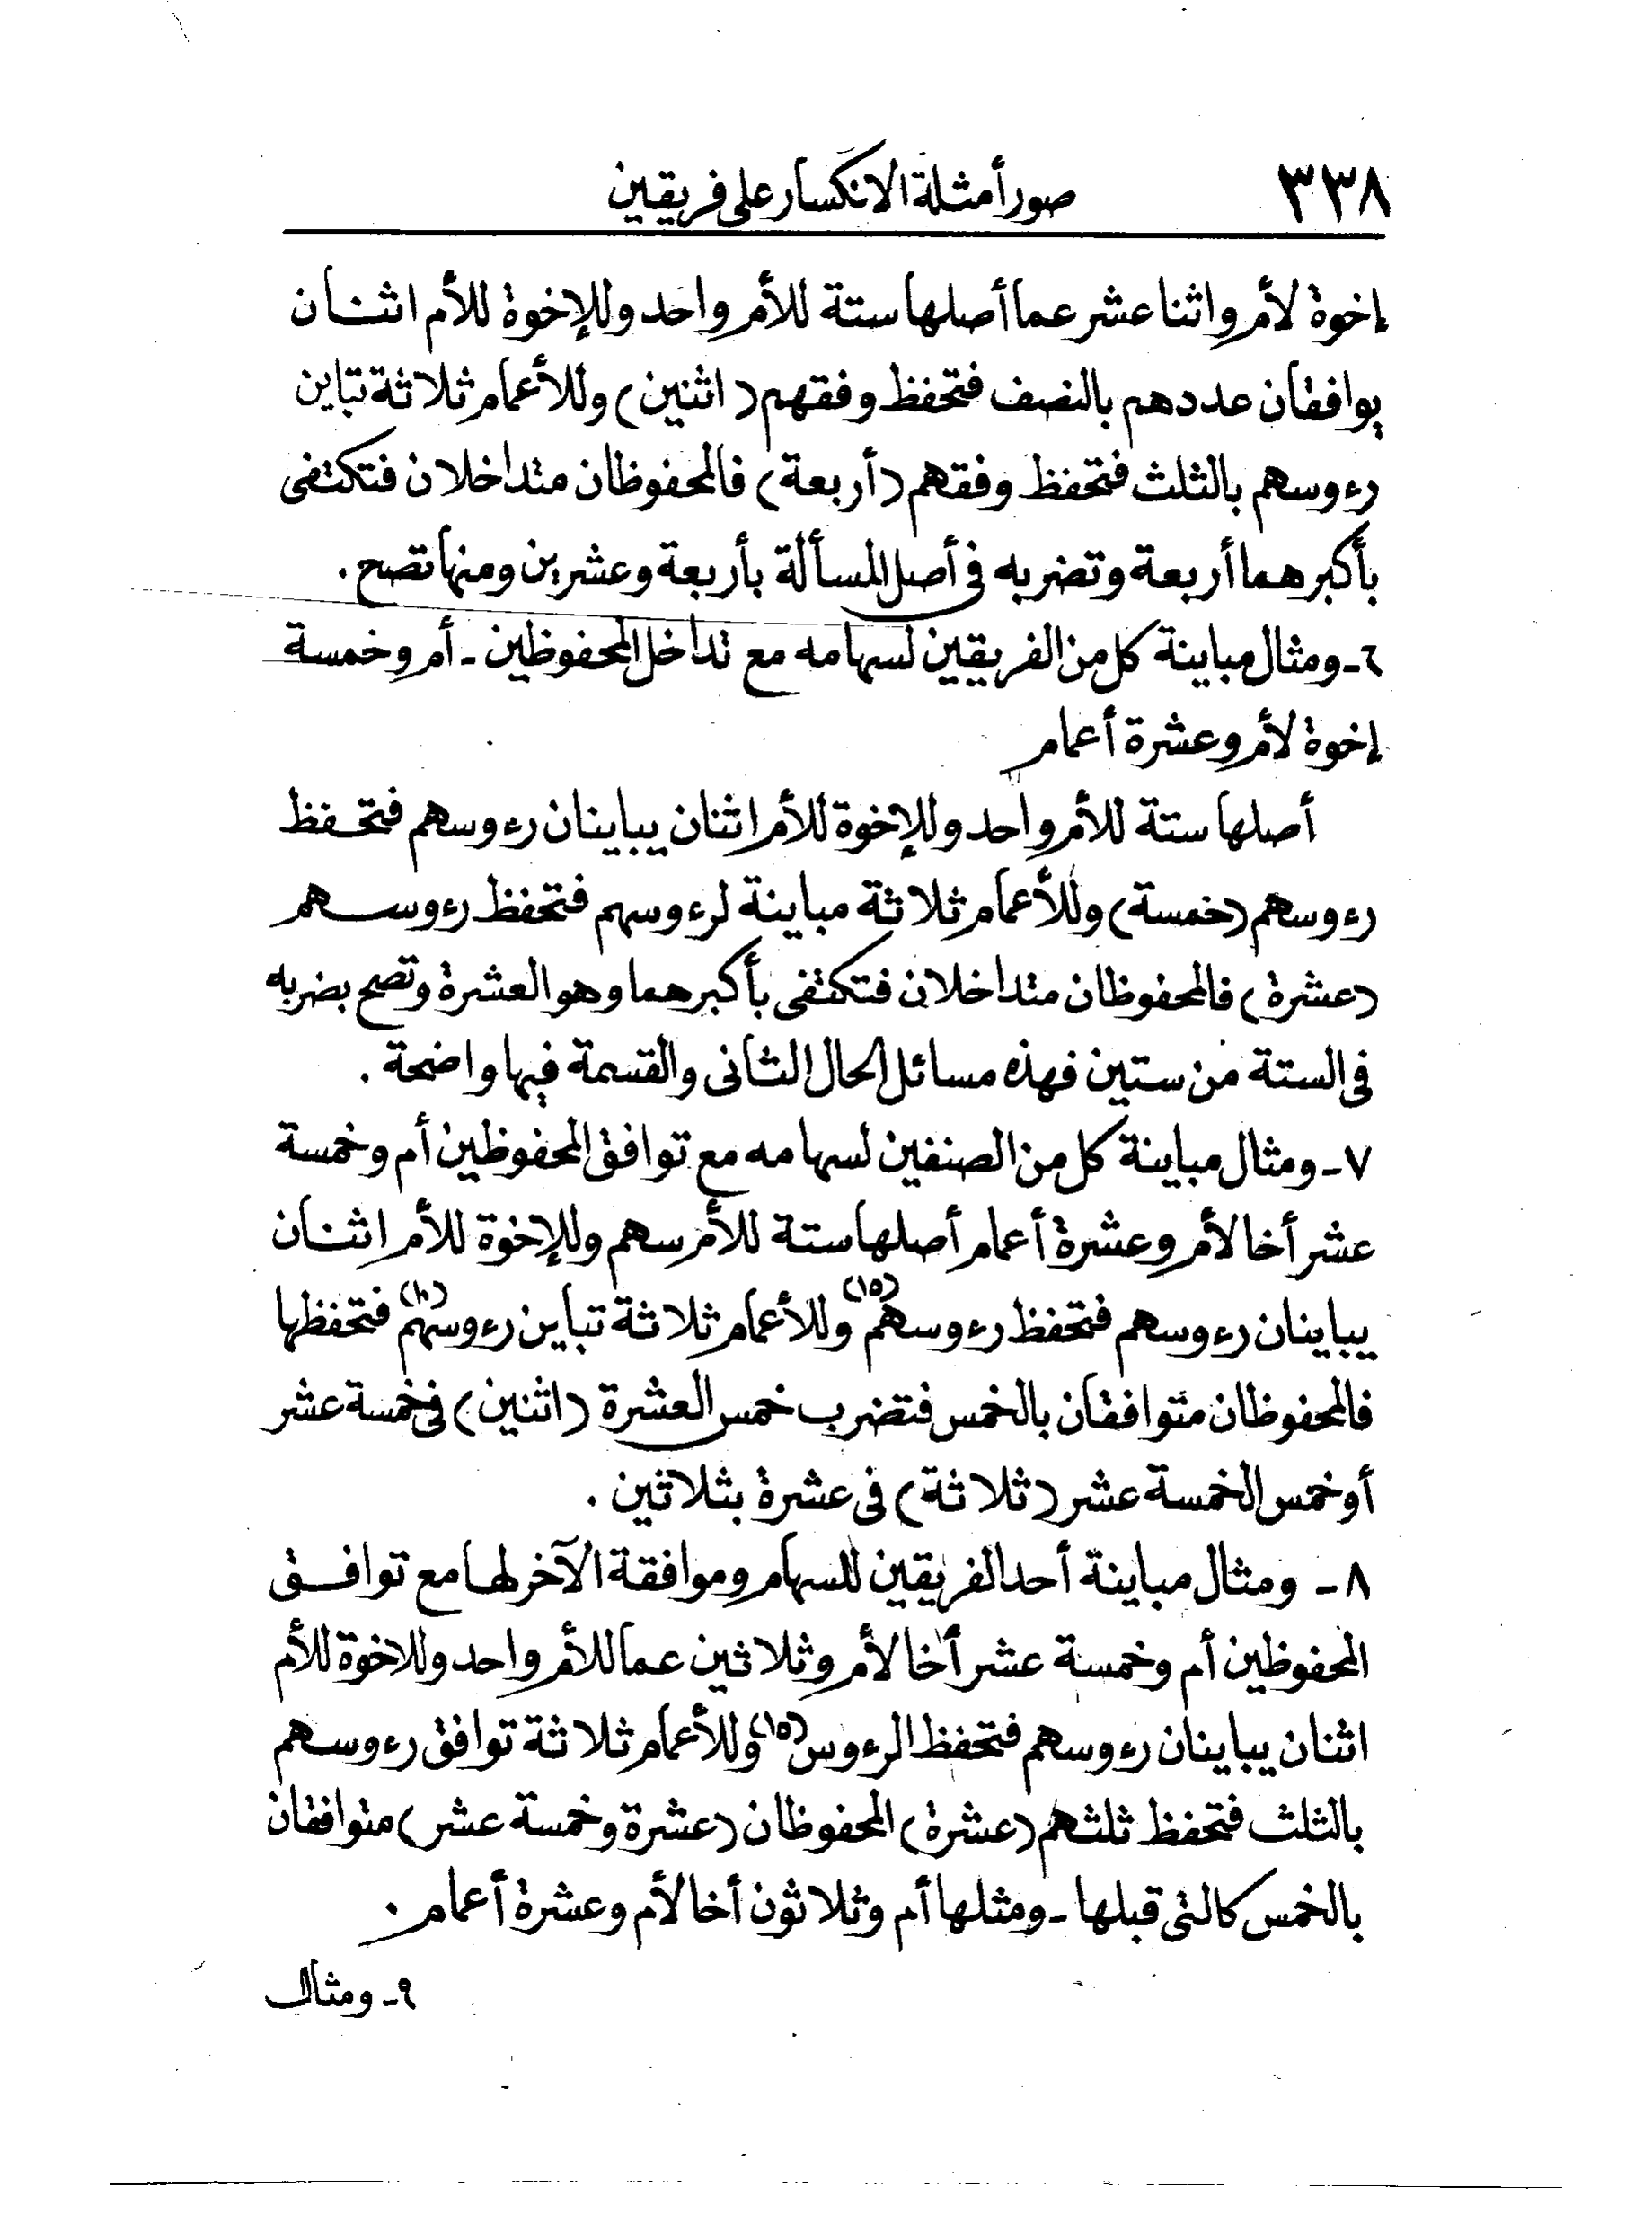 ٣٣٨ صور أمثلة الانكسار على فريقين
إخوة لأم واثنا عشر عما أصلها ستة للأم واحد وللإخوة للأم اثنان
يوافقان عددهم بالنصف فتحفظ وفقهم (اثنين) وللأعمام ثلاثة تباين
رءوسهم بالثلث فتحفظ وفقهم (أربعة) فالمحفوظان متداخلان فتكتفى
بأكبرهما أربعة وتضربه فى أصل المسألة بأربعة وعشرين ومنها تصح .
٦ـ ومثال مباينة كل من الفريقين لسهامه مع تداخل المحفوظين ـ أم وخمسة
إخوة لأم وعشرة أعمام
أصلها ستة للأم واحد وللإخوة للأم اثنان يباينان رءوسهم فتحفظ
رءوسهم (خمسة) وللأعمام ثلاثة مباينة لرءوسهم فتحفظ رءوسهم
(عشرة) فالمحفوظان متداخلان فتكتفى بأكبرهما وهو العشرة وتصح بضربه
فى الستة من ستين فهذه مسائل الحال الثانى والقسمة فيها واضحة .
٧ـ ومثال مباينة كل من الصنفين لسهامه مع توافق المحفوظين أم وخمسة
عشر أخا لأم وعشرة أعمام أصلها ستة للأم سهم وللإخوة للأم اثنان
يباينان رءوسهم فتحفظ رءوسهم (١٥) وللأعمام ثلاثة تباين رءوسهم (١٠) فتحفظها
فالمحفوظان متوافقان بالخمس فتضرب خمس العشرة (اثنين) فى خمسة عشر
أو خمس الخمسة عشر (ثلاثة) فى عشرة بثلاثين .
٨ـ ومثال مباينة أحد الفريقين للسهام وموافقة الآخر لها مع توافق
المحفوظين أم وخمسة عشر أخا لأم وثلاثين عما للأم واحد وللاخوة للأم
اثنان يباينان رءوسهم فتحفظ الرءوس (١٥) وللأعمام ثلاثة توافق رءوسهم
بالثلث فتحفظ ثلثهم (عشرة) المحفوظان (عشرة وخمسة عشر) متوافقان
بالخمس كالتى قبلها ـ ومثلها أم وثلاثون أخا لأم وعشرة أعمام .
٩ـ ومثال